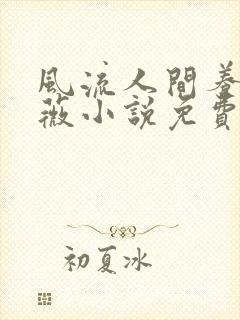 風流人間蔷
薇小說免費
初夏冰